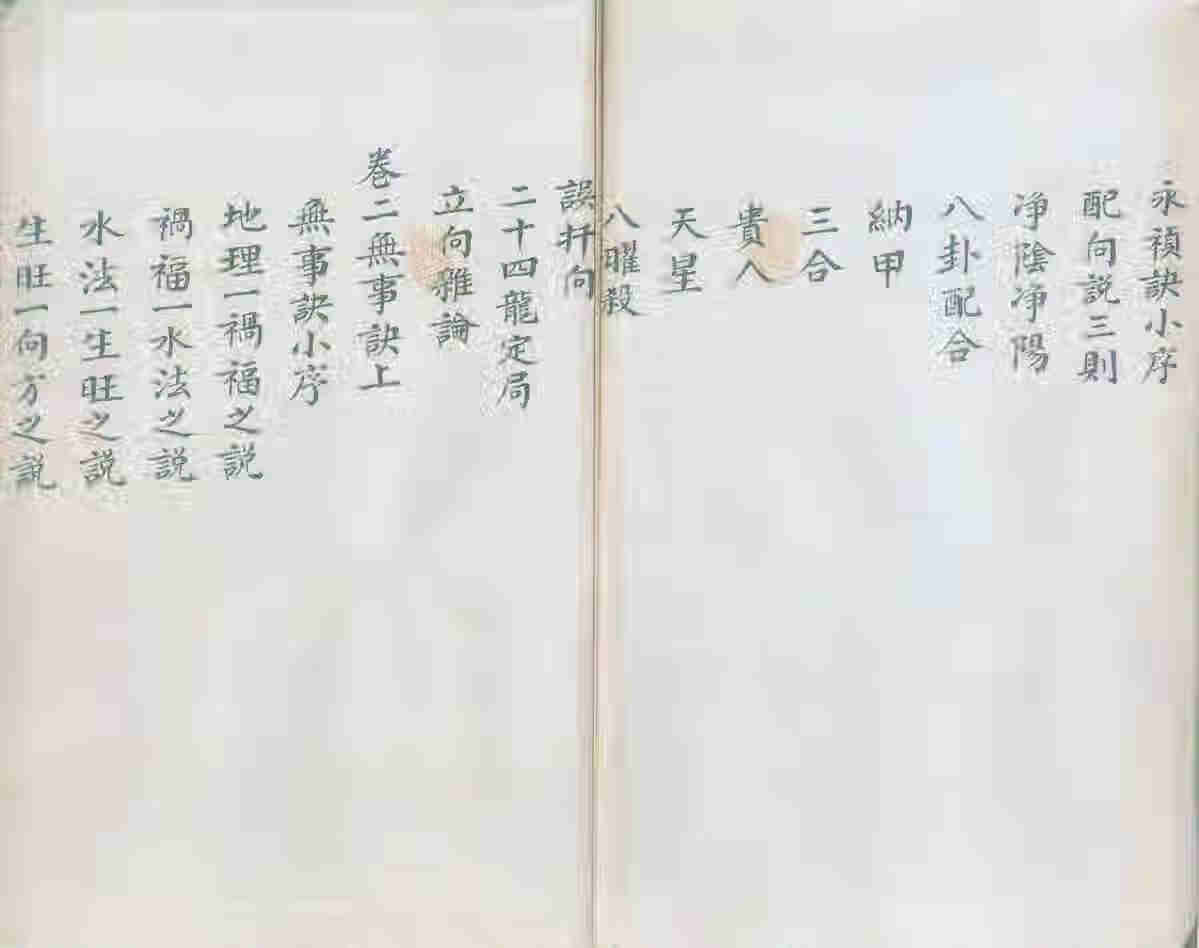 永禎訣小序
配向説三則
净陰净陽
八卦配合
納甲
三合
貴人
天星
八曜殺
誤扦向
二十四龍定局
立向雜論
卷二無事訣上
無事訣小序
地理一禍福之説
禍福一水法之説
水法一生旺之説
生旺一向方之説